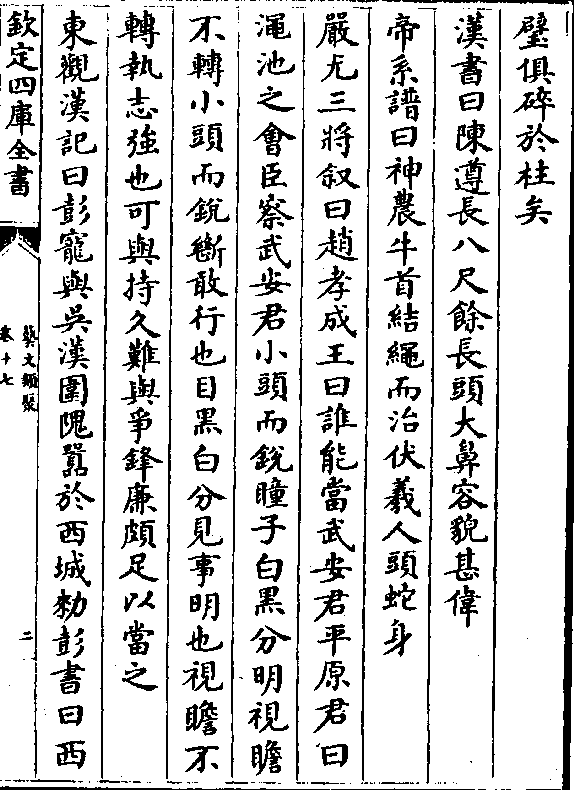 璧俱碎於柱矣
漢書曰陳遵長八尺餘長頭大鼻容貌甚偉
帝系譜曰神農牛首結繩而治伏羲人頭蛇身
嚴尤三將叙曰趙孝成王曰誰能當武安君平原君曰
澠池之會臣察武安君小頭而銳瞳子白黑分明視瞻
不轉小頭而銳斷敢行也目黑白分見事明也視瞻不
轉執志強也可與持久難與爭鋒廉頗足以當之
東觀漢記曰彭寵與吳漢圍隗囂於西城勑彭書曰西
欽定四庫全書
藝文類聚
卷十七
二